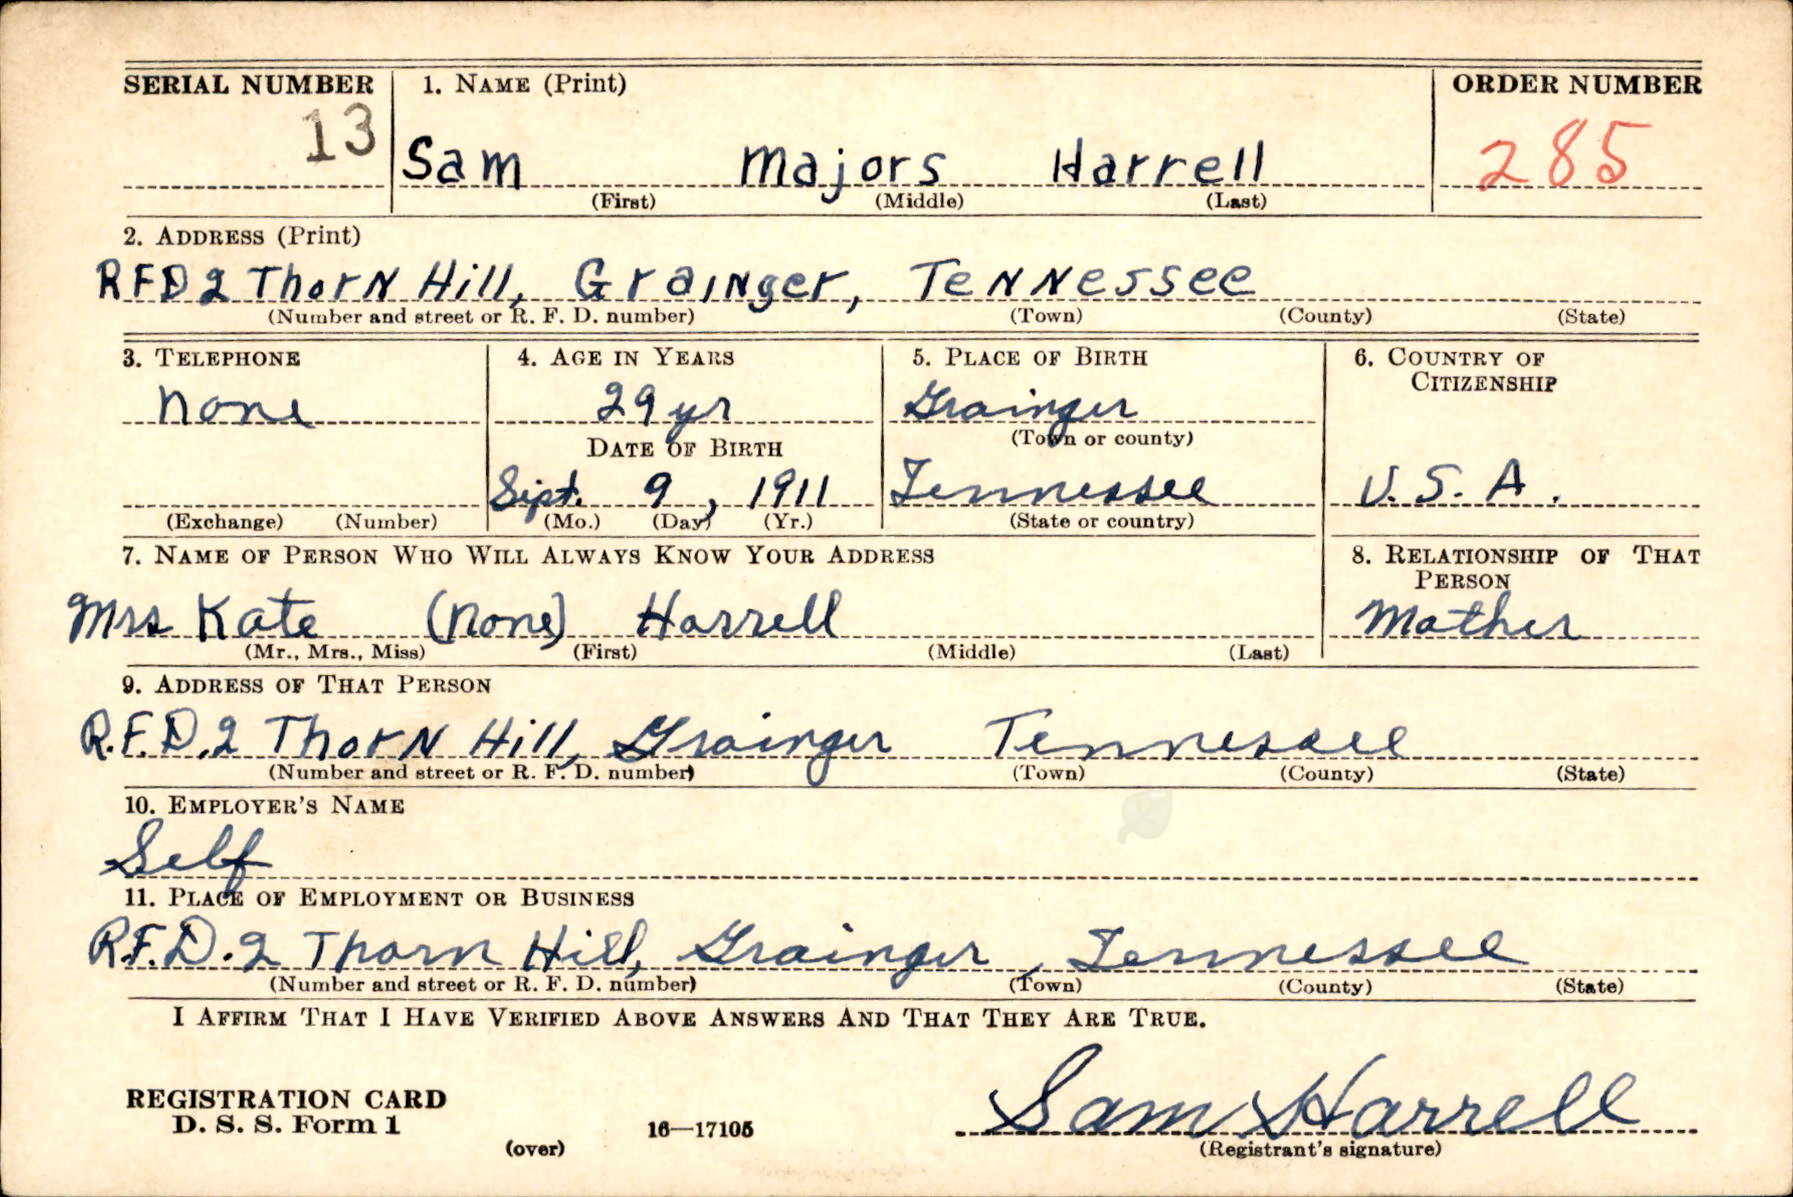 SERIAL NUMBER 1. NAME (Print) ORDER NUMBER
13 Sam Majors Harrell 285
(First) (Middle) (Last)
2. ADDRESS (Print)
RFD 2 Thorn Hill, Grainger, Tennessee
(Number and street or R. F. D. number) (Town) (County) (State)
3. TELEPHONE 4. AGE IN YEARS 5. PLACE OF BIRTH 6. COUNTRY OF
CITIZENSHIP
None 29 yr Grainger
DATE OF BIRTH (Town or county)
Sept. 9, 1911 Tennessee U.S.A.
(Exchange) (Number) (Mo.) (Day) (Yr.) (State or country)
7. NAME OF PERSON WHO WILL ALWAYS KNOW YOUR ADDRESS 8. RELATIONSHIP OF THAT
PERSON
Mrs Kate (None) Harrell Mother
(Mr., Mrs., Miss) (First) (Middle) (Last)
9. ADDRESS OF THAT PERSON
R.F.D. 2 Thorn Hill, Grainger Tennessee
(Number and street or R. F. D. number) (Town) (County) (State)
10. EMPLOYER'S NAME
Self
11. PLACE OF EMPLOYMENT OR BUSINESS
R.F.D. 2 Thorn Hill, Grainger, Tennessee
(Number and street or R. F. D. number) (Town) (County) (State)
I AFFIRM THAT I HAVE VERIFIED ABOVE ANSWERS AND THAT THEY ARE TRUE.
REGISTRATION CARD
D. S. S. Form 1 16—17105 Sam Harrell
(over) (Registrant's signature)